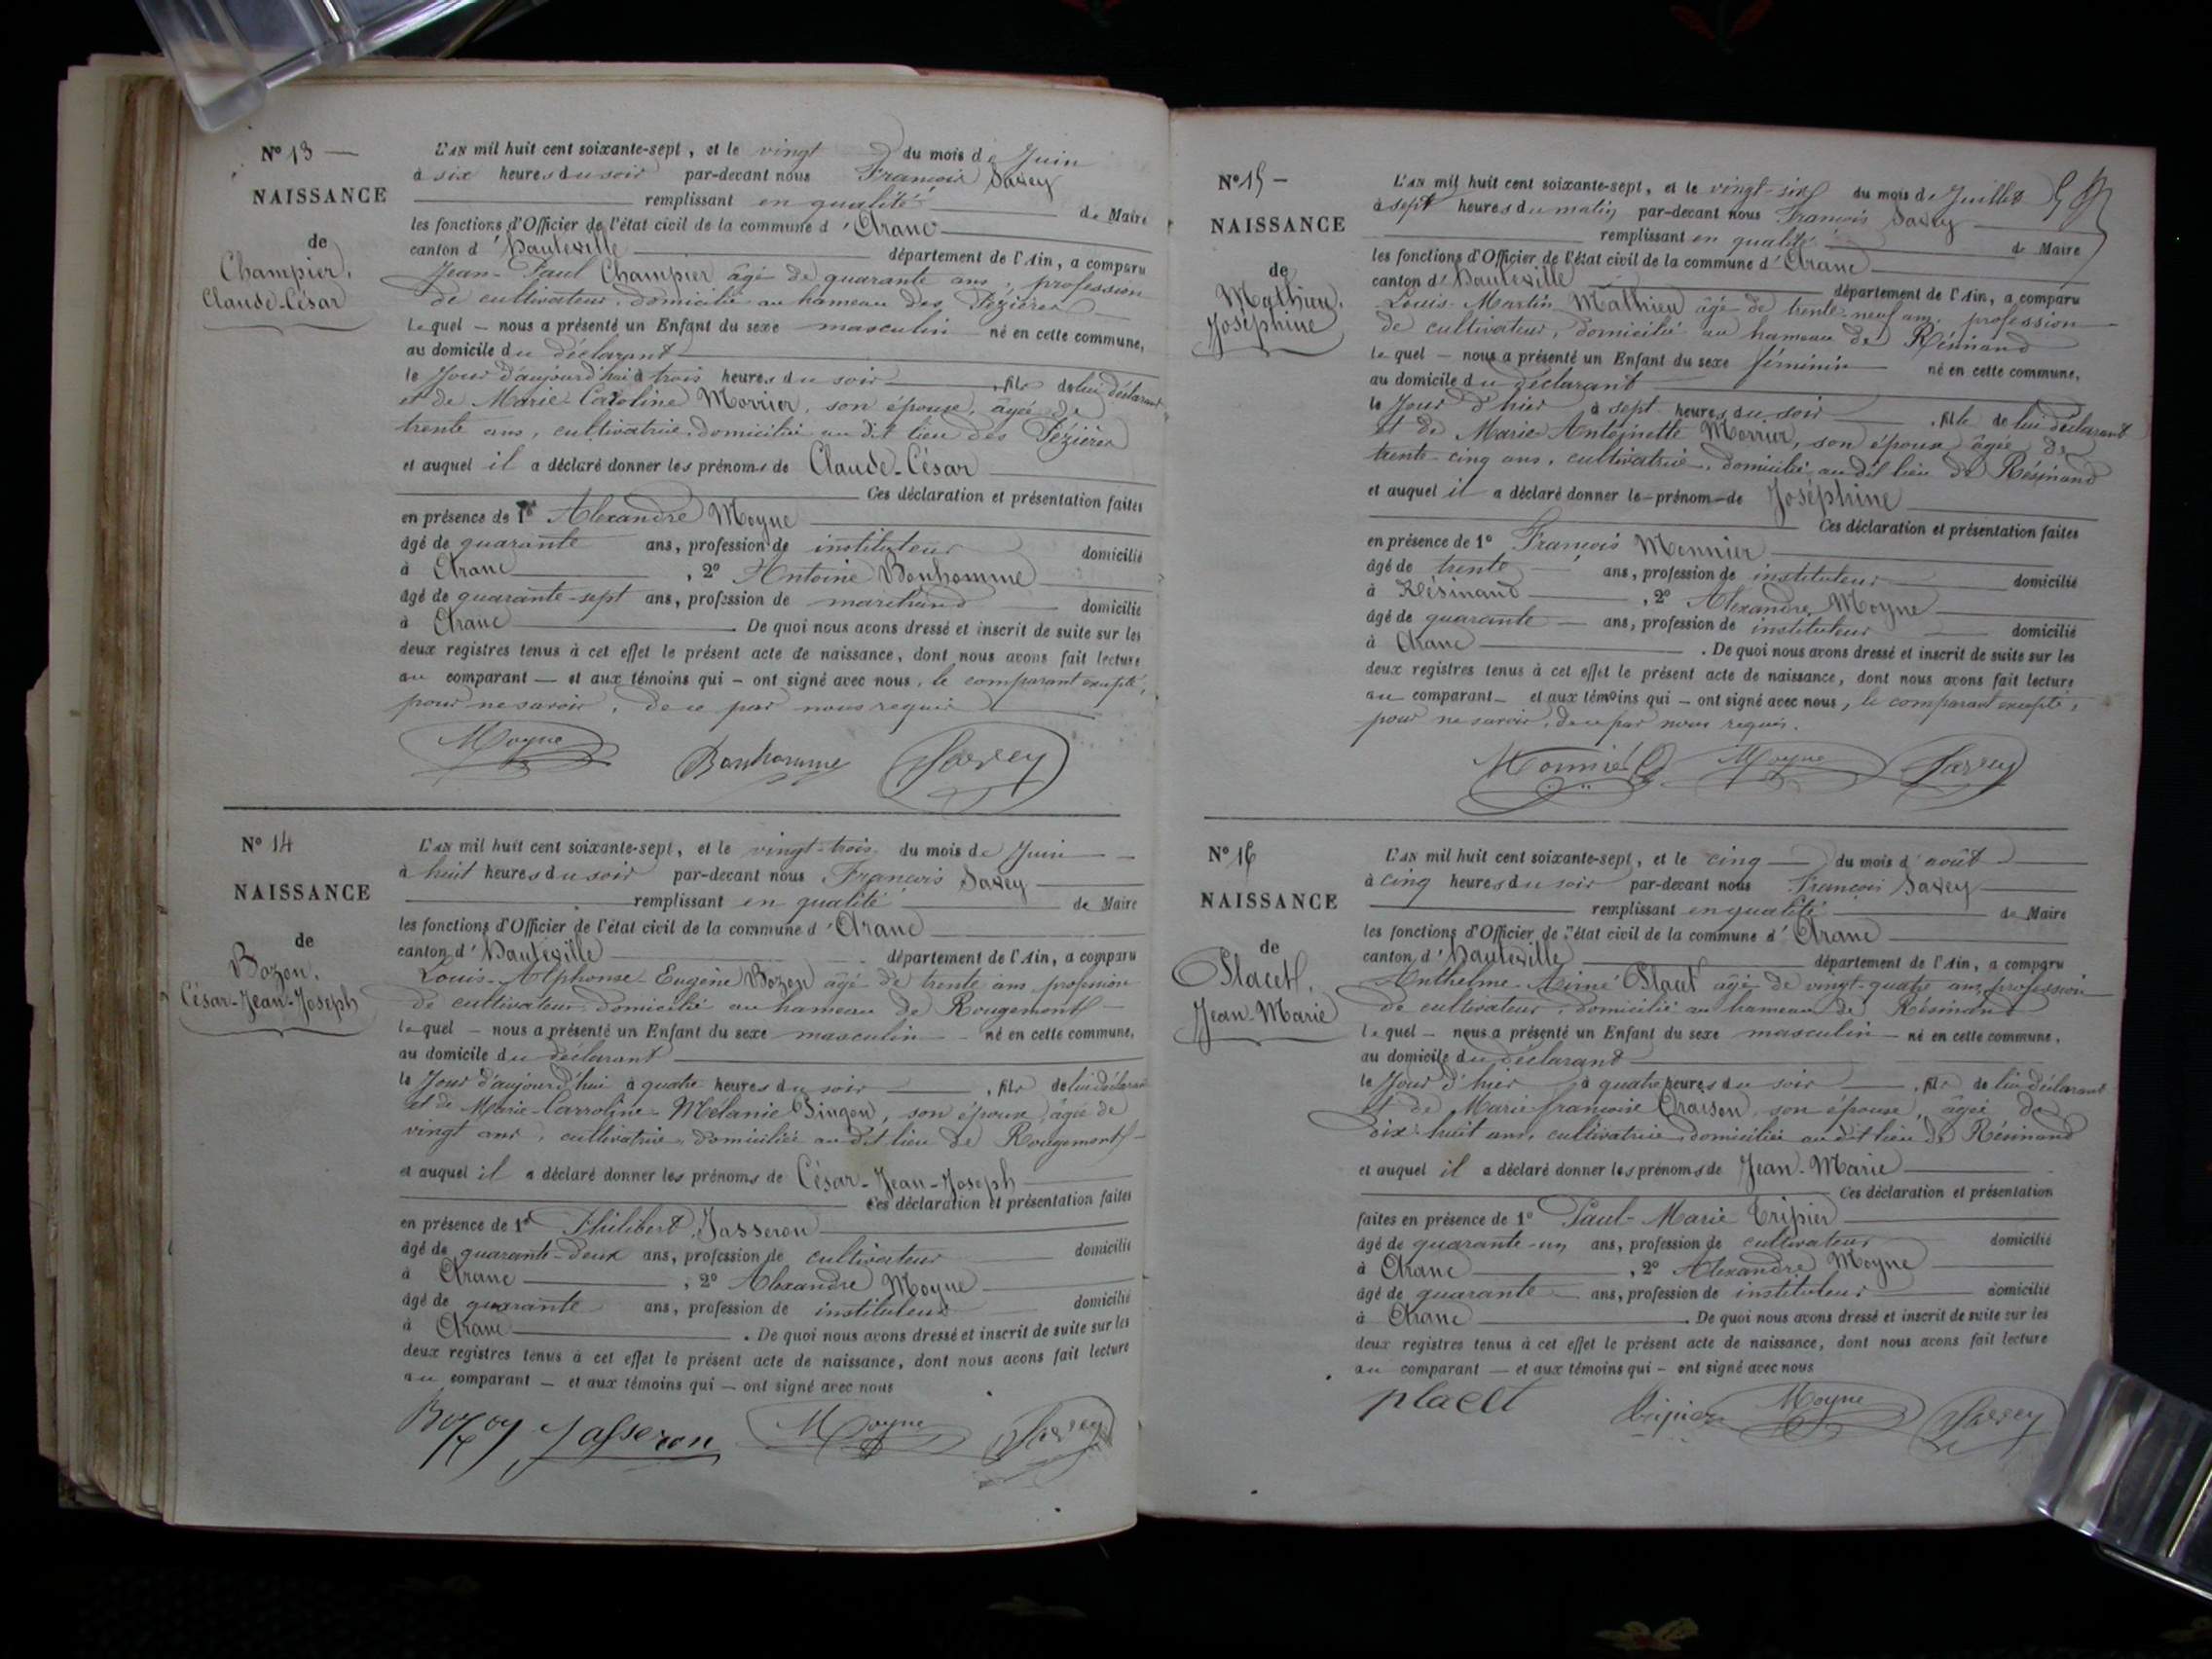 N° 13 —
NAISSANCE
de
Champier,
Claude-César
L'AN mil huit cent soixante-sept, et le vingt du mois de Juin
à six heures du soir par-devant nous François Savey
remplissant en qualité de Maire
les fonctions d'Officier de l'état civil de la commune d'Aranc
canton d'Hauteville département de l'Ain, a comparu
Jean-Paul Champier âgé de quarante ans, profession
de cultivateur, domicilié au hameau des Pézières
lequel — nous a présenté un Enfant du sexe masculin né en cette commune,
au domicile du déclarant
le Jour d'aujourd'hui à trois heures du soir, fils de lui déclarant
et de Marie-Caroline Morrier, son épouse, âgée de
trente ans, cultivatrice, domiciliée au dit lieu des Pézières
et auquel il a déclaré donner les prénoms de Claude-César
Ces déclaration et présentation faites
en présence de 1° Alexandre Moyne
âgé de quarante ans, profession de instituteur domicilié
à Aranc, 2° Antoine Bonhomme
âgé de quarante-sept ans, profession de marchand domicilié
à Aranc. De quoi nous avons dressé et inscrit de suite sur les
deux registres tenus à cet effet le présent acte de naissance, dont nous avons fait lecture
au comparant — et aux témoins qui — ont signé avec nous, le comparant excepté,
pour ne savoir, de ce par nous requis
Moyne Bonhomme Savey
N° 14
NAISSANCE
de
Bozon,
César-Jean-Joseph
L'AN mil huit cent soixante-sept, et le vingt-trois du mois de Juin
à huit heures du soir par-devant nous François Savey
remplissant en qualité de Maire
les fonctions d'Officier de l'état civil de la commune d'Aranc
canton d'Hauteville département de l'Ain, a comparu
Louis-Alphonse-Eugène Bozon âgé de trente ans profession
de cultivateur domicilié au hameau de Rougemont
lequel — nous a présenté un Enfant du sexe masculin né en cette commune,
au domicile du déclarant
le Jour d'aujourd'hui à quatre heures du soir, fils de lui déclarant
et de Marie-Carroline-Mélanie Singon, son épouse, âgée de
vingt ans, cultivatrice, domiciliée au dit lieu de Rougemont
et auquel il a déclaré donner les prénoms de César-Jean-Joseph
Ces déclaration et présentation faites
en présence de 1° Philibert Jasseron
âgé de quarante-deux ans, profession de cultivateur domicilié
à Aranc, 2° Alexandre Moyne
âgé de quarante ans, profession de instituteur domicilié
à Aranc. De quoi nous avons dressé et inscrit de suite sur les
deux registres tenus à cet effet le présent acte de naissance, dont nous avons fait lecture
au comparant — et aux témoins qui — ont signé avec nous
Bozon Jasseron Moyne Savey
N° 15 —
NAISSANCE
de
Mathieu,
Joséphine
L'AN mil huit cent soixante-sept, et le vingt-six du mois de Juillet
à sept heures du matin par-devant nous François Savey
remplissant en qualité de Maire
les fonctions d'Officier de l'état civil de la commune d'Aranc
canton d'Hauteville département de l'Ain, a comparu
Louis-Martin Mathieu âgé de trente-neuf ans, profession
de cultivateur, domicilié au hameau de Résinand
lequel — nous a présenté un Enfant du sexe féminin né en cette commune,
au domicile du déclarant
le Jour d'hier à sept heures du soir, fille de lui déclarant
et de Marie Antoinette Morrier, son épouse âgée de
trente-cinq ans, cultivatrice, domiciliée au dit lieu de Résinand
et auquel il a déclaré donner le prénom de Joséphine
Ces déclaration et présentation faites
en présence de 1° François Monnier
âgé de trente ans, profession de instituteur domicilié
à Résinand, 2° Alexandre Moyne
âgé de quarante — ans, profession de instituteur domicilié
à Aranc. De quoi nous avons dressé et inscrit de suite sur les
deux registres tenus à cet effet le présent acte de naissance, dont nous avons fait lecture
au comparant — et aux témoins qui — ont signé avec nous, le comparant excepté,
pour ne savoir, de ce par nous requis.
Monnier Moyne Savey
N° 16
NAISSANCE
de
Placet,
Jean-Marie
L'AN mil huit cent soixante-sept, et le cinq du mois d'août
à cinq heures du soir par-devant nous François Savey
remplissant en qualité de Maire
les fonctions d'Officier de l'état civil de la commune d'Aranc
canton d'Hauteville département de l'Ain, a comparu
Anthelme-Aimé Placet âgé de vingt-quatre ans, profession
de cultivateur, domicilié au hameau de Résinand
lequel — nous a présenté un Enfant du sexe masculin — né en cette commune,
au domicile du déclarant
le Jour d'hier à quatre heures du soir, fils de lui déclarant
et de Marie françoise Araison, son épouse, âgée de
dix-huit ans, cultivatrice domiciliée au dit lieu de Résinand
et auquel il a déclaré donner les prénoms de Jean-Marie
Ces déclaration et présentation
faites en présence de 1° Paul-Marie Tripier
âgé de quarante-un ans, profession de cultivateur domicilié
à Aranc, 2° Alexandre Moyne
âgé de quarante — ans, profession de instituteur domicilié
à Aranc. De quoi nous avons dressé et inscrit de suite sur les
deux registres tenus à cet effet le présent acte de naissance, dont nous avons fait lecture
au comparant — et aux témoins qui — ont signé avec nous
placet tripier Moyne Savey